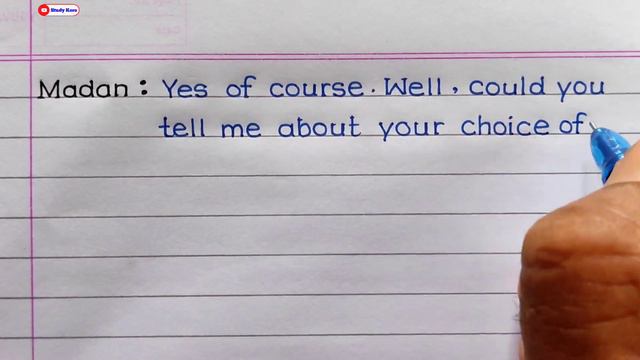 Study Koro
Madan : Yes of course. Well, could you
tell me about your choice of